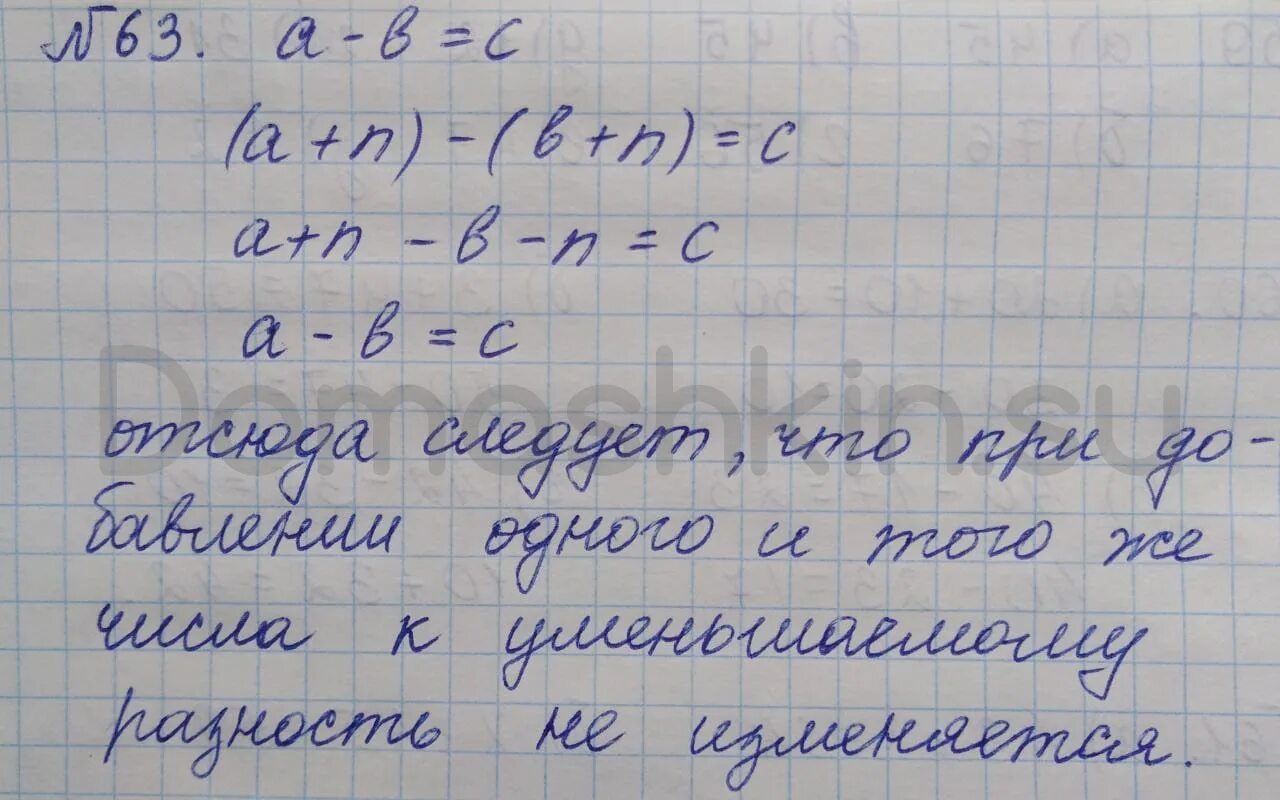 №63. а - в = с
(а + n) - (в + n) = с
а + n - в - n = с
а - в = с
Domoshkin.su
отсюда следует, что при до-
бавлении одного и того же
числа к уменьшаемому
разность не изменяется.